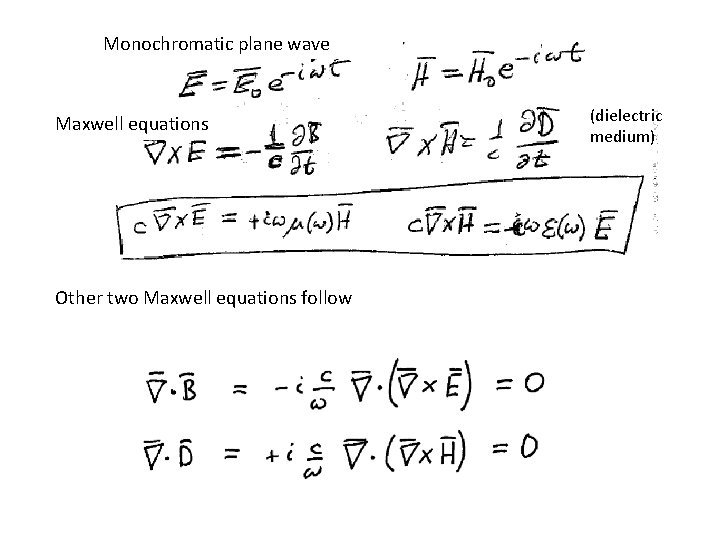 Monochromatic plane wave
E̅ = E̅₀ e^{-iωt}    H̅ = H̅₀ e^{-iωt}
Maxwell equations
∇̅×E̅ = -1/c ∂B̅/∂t    ∇̅×H̅ = 1/c ∂D̅/∂t    (dielectric
medium)
c∇̅×E̅ = +iωμ(ω)H̅    c∇̅×H̅ = -iωε(ω)E̅
Other two Maxwell equations follow
∇̅·B̅ = -i c/ω ∇̅·(∇̅×E̅) = 0
∇̅·D̅ = +i c/ω ∇̅·(∇̅×H̅) = 0